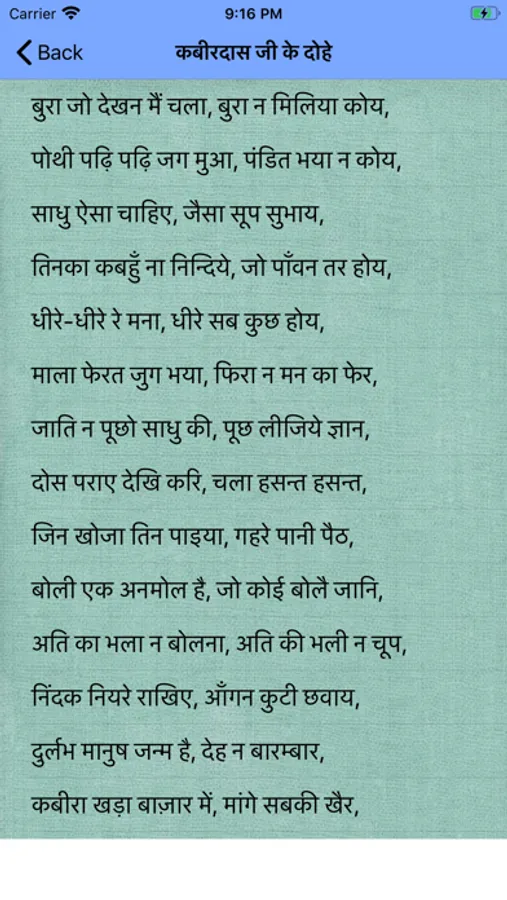 Carrier 9:16 PM
Back कबीरदास जी के दोहे
बुरा जो देखन मैं चला, बुरा न मिलिया कोय,
पोथी पढ़ि पढ़ि जग मुआ, पंडित भया न कोय,
साधु ऐसा चाहिए, जैसा सूप सुभाय,
तिनका कबहुँ ना निन्दिये, जो पाँवन तर होय,
धीरे-धीरे रे मना, धीरे सब कुछ होय,
माला फेरत जुग भया, फिरा न मन का फेर,
जाति न पूछो साधु की, पूछ लीजिये ज्ञान,
दोस पराए देखि करि, चला हसन्त हसन्त,
जिन खोजा तिन पाइया, गहरे पानी पैठ,
बोली एक अनमोल है, जो कोई बोलै जानि,
अति का भला न बोलना, अति की भली न चूप,
निंदक नियरे राखिए, आँगन कुटी छवाय,
दुर्लभ मानुष जन्म है, देह न बारम्बार,
कबीरा खड़ा बाज़ार में, मांगे सबकी खैर,